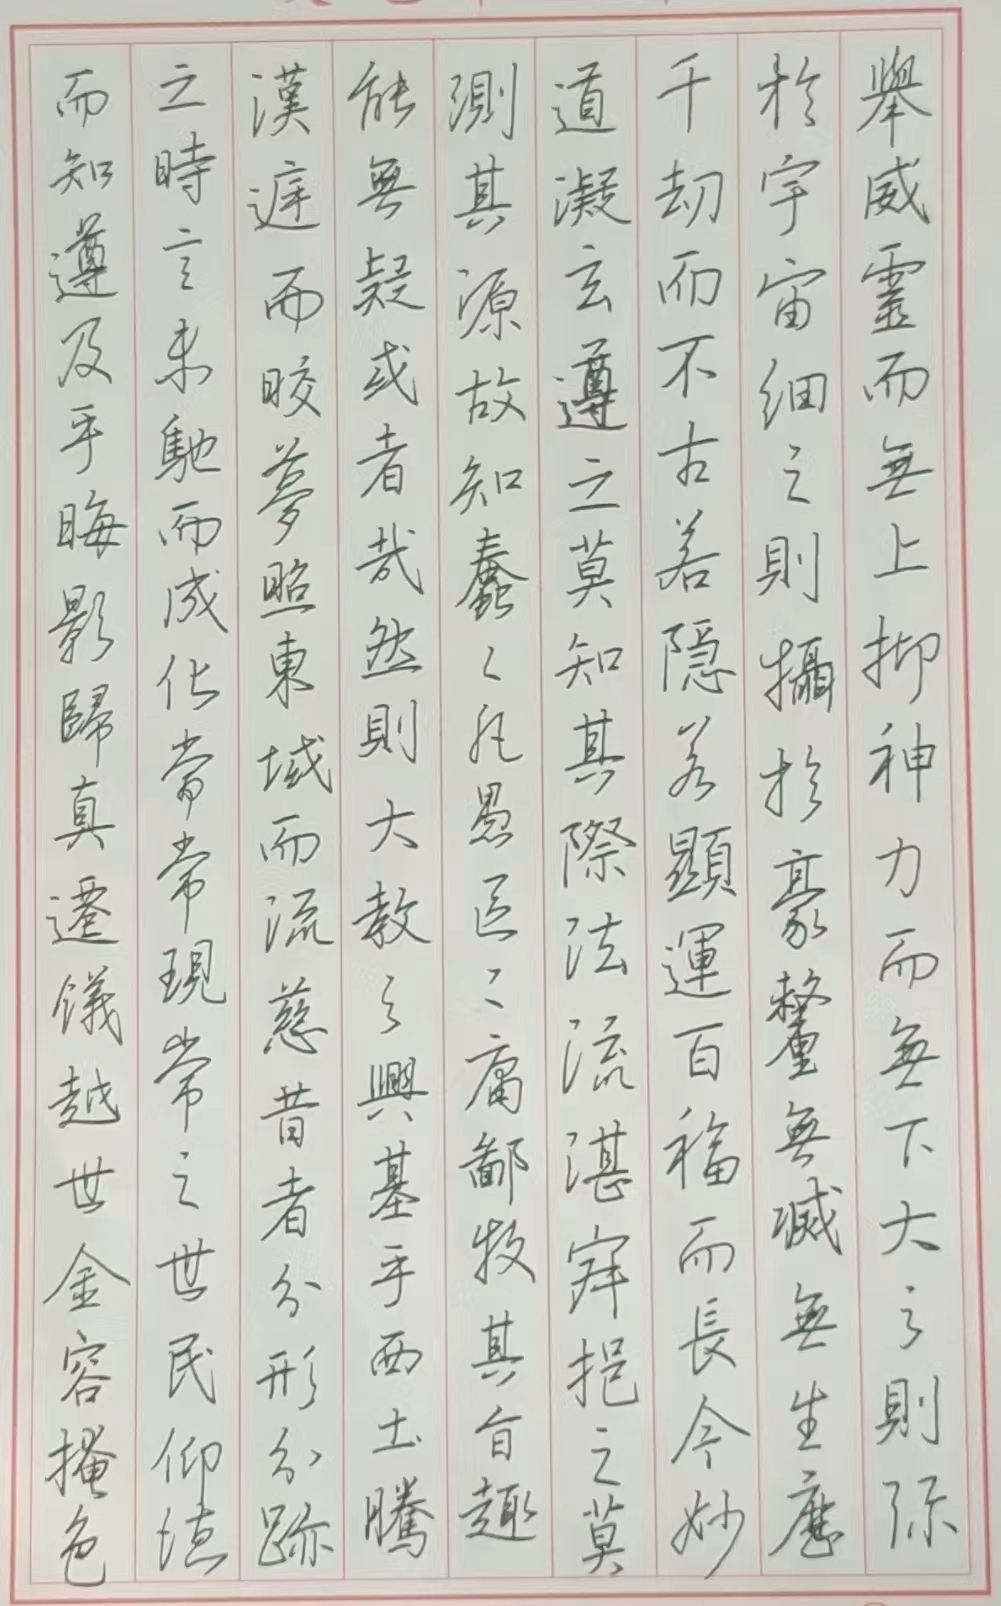 舉威靈而無上抑神力而無下大之則弥
於宇宙細之則攝於豪釐無滅無生歷
千劫而不古若隱若顯運百福而長今妙
道凝玄遵之莫知其際法流湛寂挹之莫
測其源故知蠢〻凡愚區〻庸鄙投其旨趣
能無疑或者哉然則大教之興基乎西土騰
漢庭而皎夢照東域而流慈昔者分形分跡
之時言未馳而成化當常現常之世民仰德
而知遵及乎晦影歸真遷儀越世金容掩色